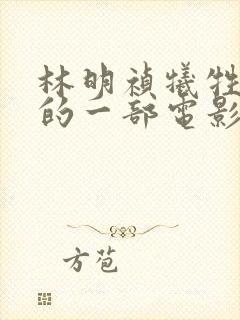 林明禎犧牲
的一部電影
方苞